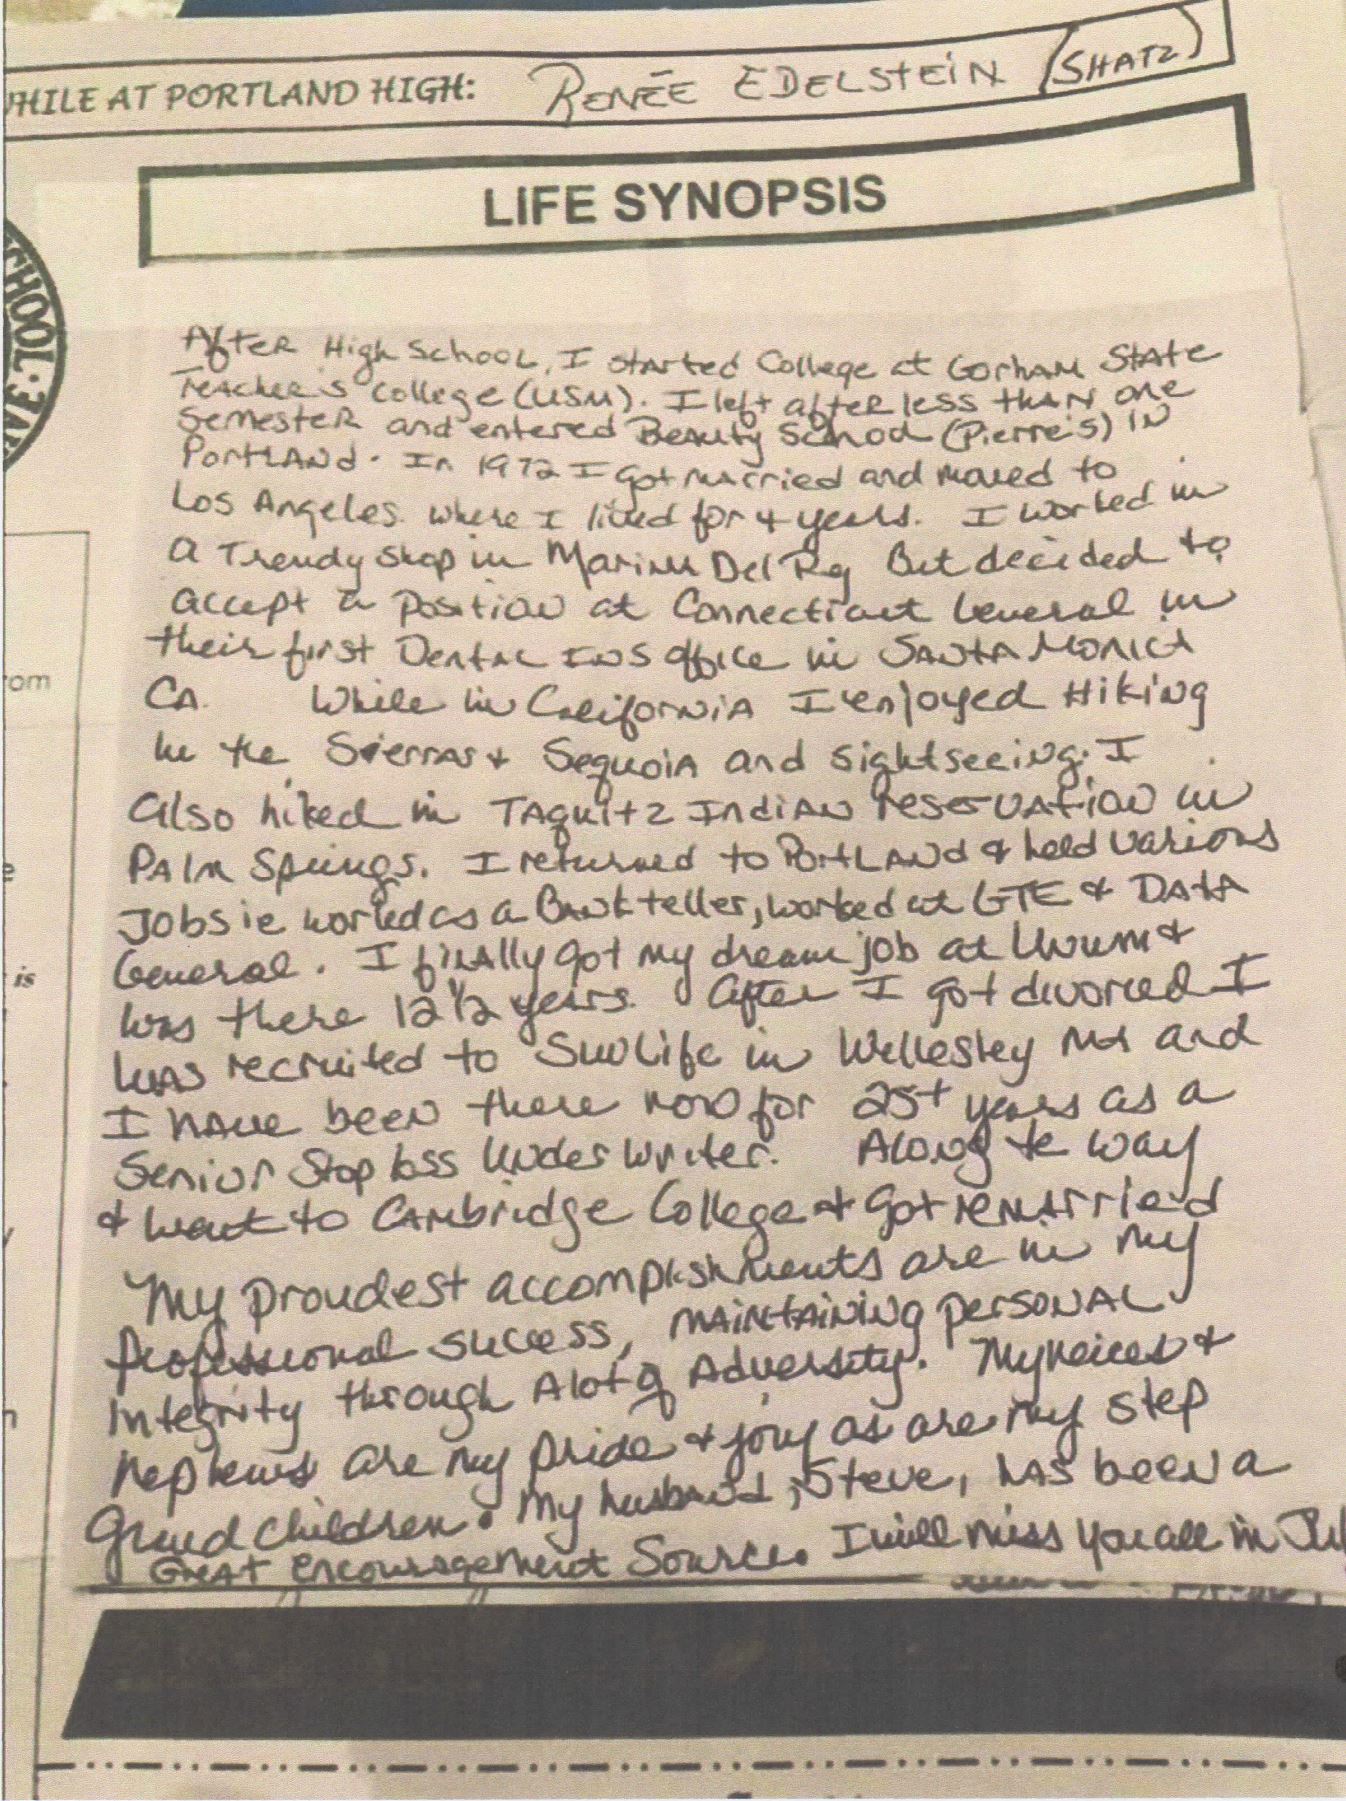 WHILE AT PORTLAND HIGH: RENÉE EDELSTEIN (SHATZ)
LIFE SYNOPSIS
CHOOL
om
is
After High School, I started College at Gorham State
Teacher's College (USM). I left after less than one
Semester and entered Beauty School (Pierre's) in
Portland. In 1972 I got married and moved to
Los Angeles where I lived for 4 years. I worked in
a Trendy shop in Marina Del Rey But decided to
accept a position at Connecticut General in
their first Dental INS office in Santa Monica
CA. While in California I enjoyed Hiking
in the Sierras & Sequoia and sightseeing. I
also hiked in Taquitz Indian reservation in
Palm Springs. I returned to Portland & held various
Jobs ie worked as a Bank teller, worked at GTE & Data
General. I finally got my dream job at Unum &
was there 12 1/2 years. After I got divorced I
was recruited to SunLife in Wellesley MA and
I have been there now for 25+ years as a
Senior Stop loss Underwriter. Along the way
& went to Cambridge College & Got remarried
My proudest accomplishments are in my
professional success, maintaining personal
integrity through Alot of Adversity. My neices &
nephews are my pride & joy as are my step
Grand children. My husband, Steve, has been a
Great encouragement Source. I will miss you all in Jul